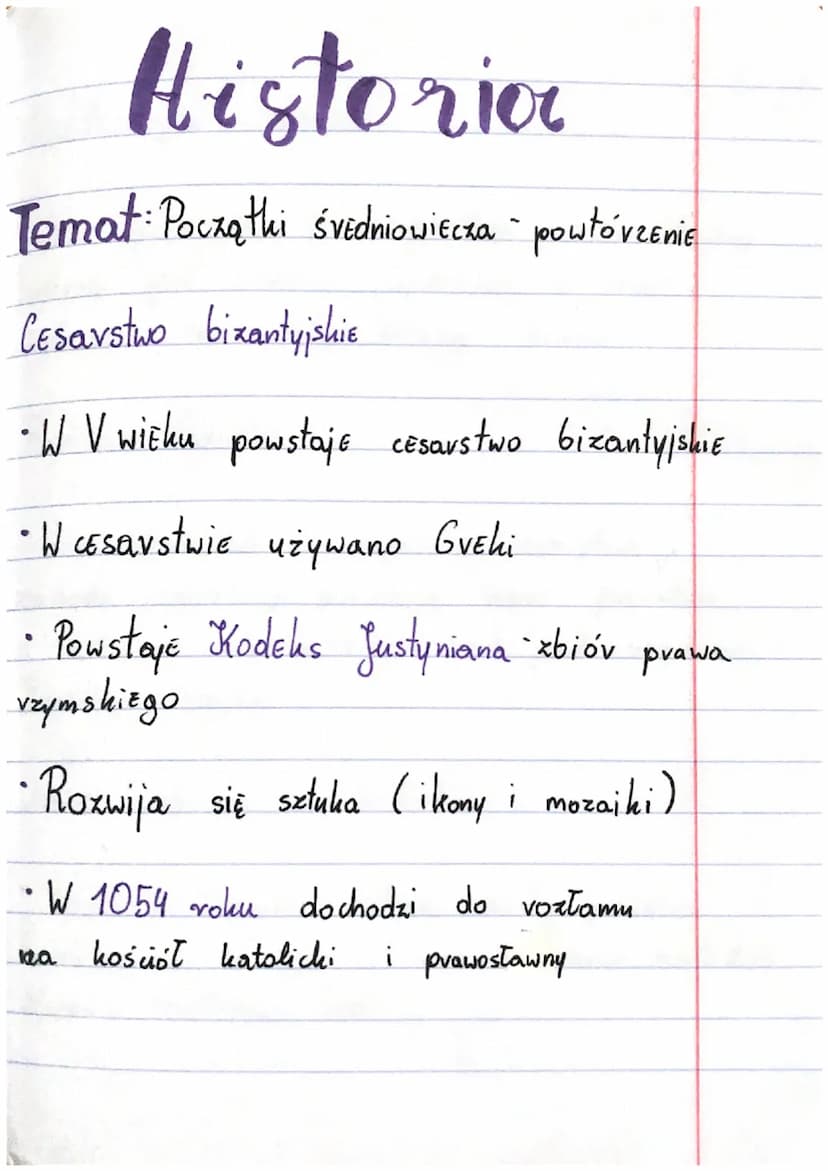 Historia
Temat: Początki średniowiecza - powtórzenie
Cesarstwo bizantyjskie
• W V wieku powstaje cesarstwo bizantyjskie
• W cesarstwie używano Greki
• Powstaje Kodeks Justyniana - zbiór prawa
rzymskiego
• Rozwija się sztuka (ikony i mozaiki)
• W 1054 roku dochodzi do rozłamu
na kościół katolicki i prawosławny